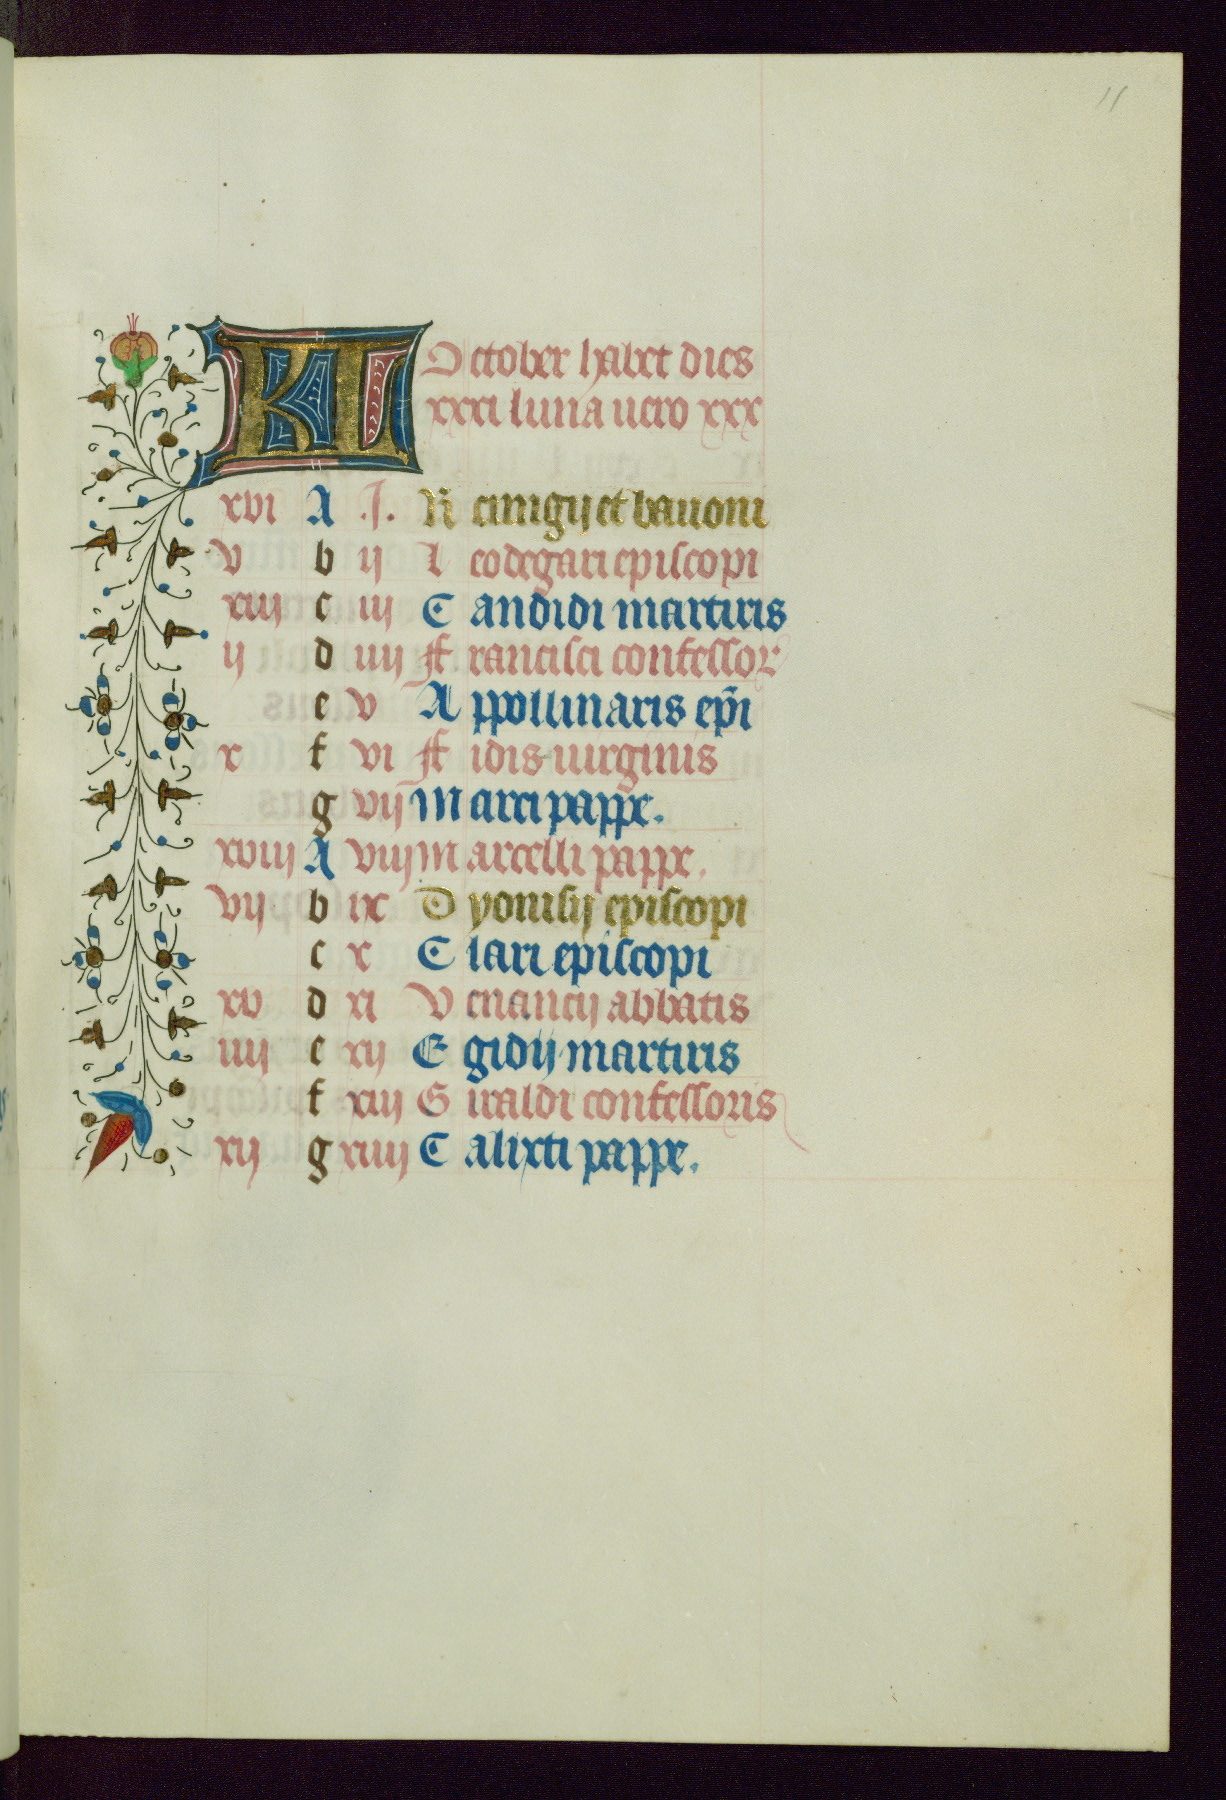 11
KL October habet dies
xxxi luna uero xxx
xvi A .J. Remigij et bauoni
v b ij Leodegari episcopi
xiij c iij Candidi martiris
ij d iiij ffrancisci confessor
e v Appollinaris epi
x f vi ffidis uirginis
g vij Marci pappe.
xviij A viij Marcelli pappe.
vij b ix Dyonisij episcopi
c x Clari episcopi
xv d xi Venancij abbatis
iiij e xij Egidij martiris
f xiij Giraldi confessoris
xij g xiiij Calixti pappe.